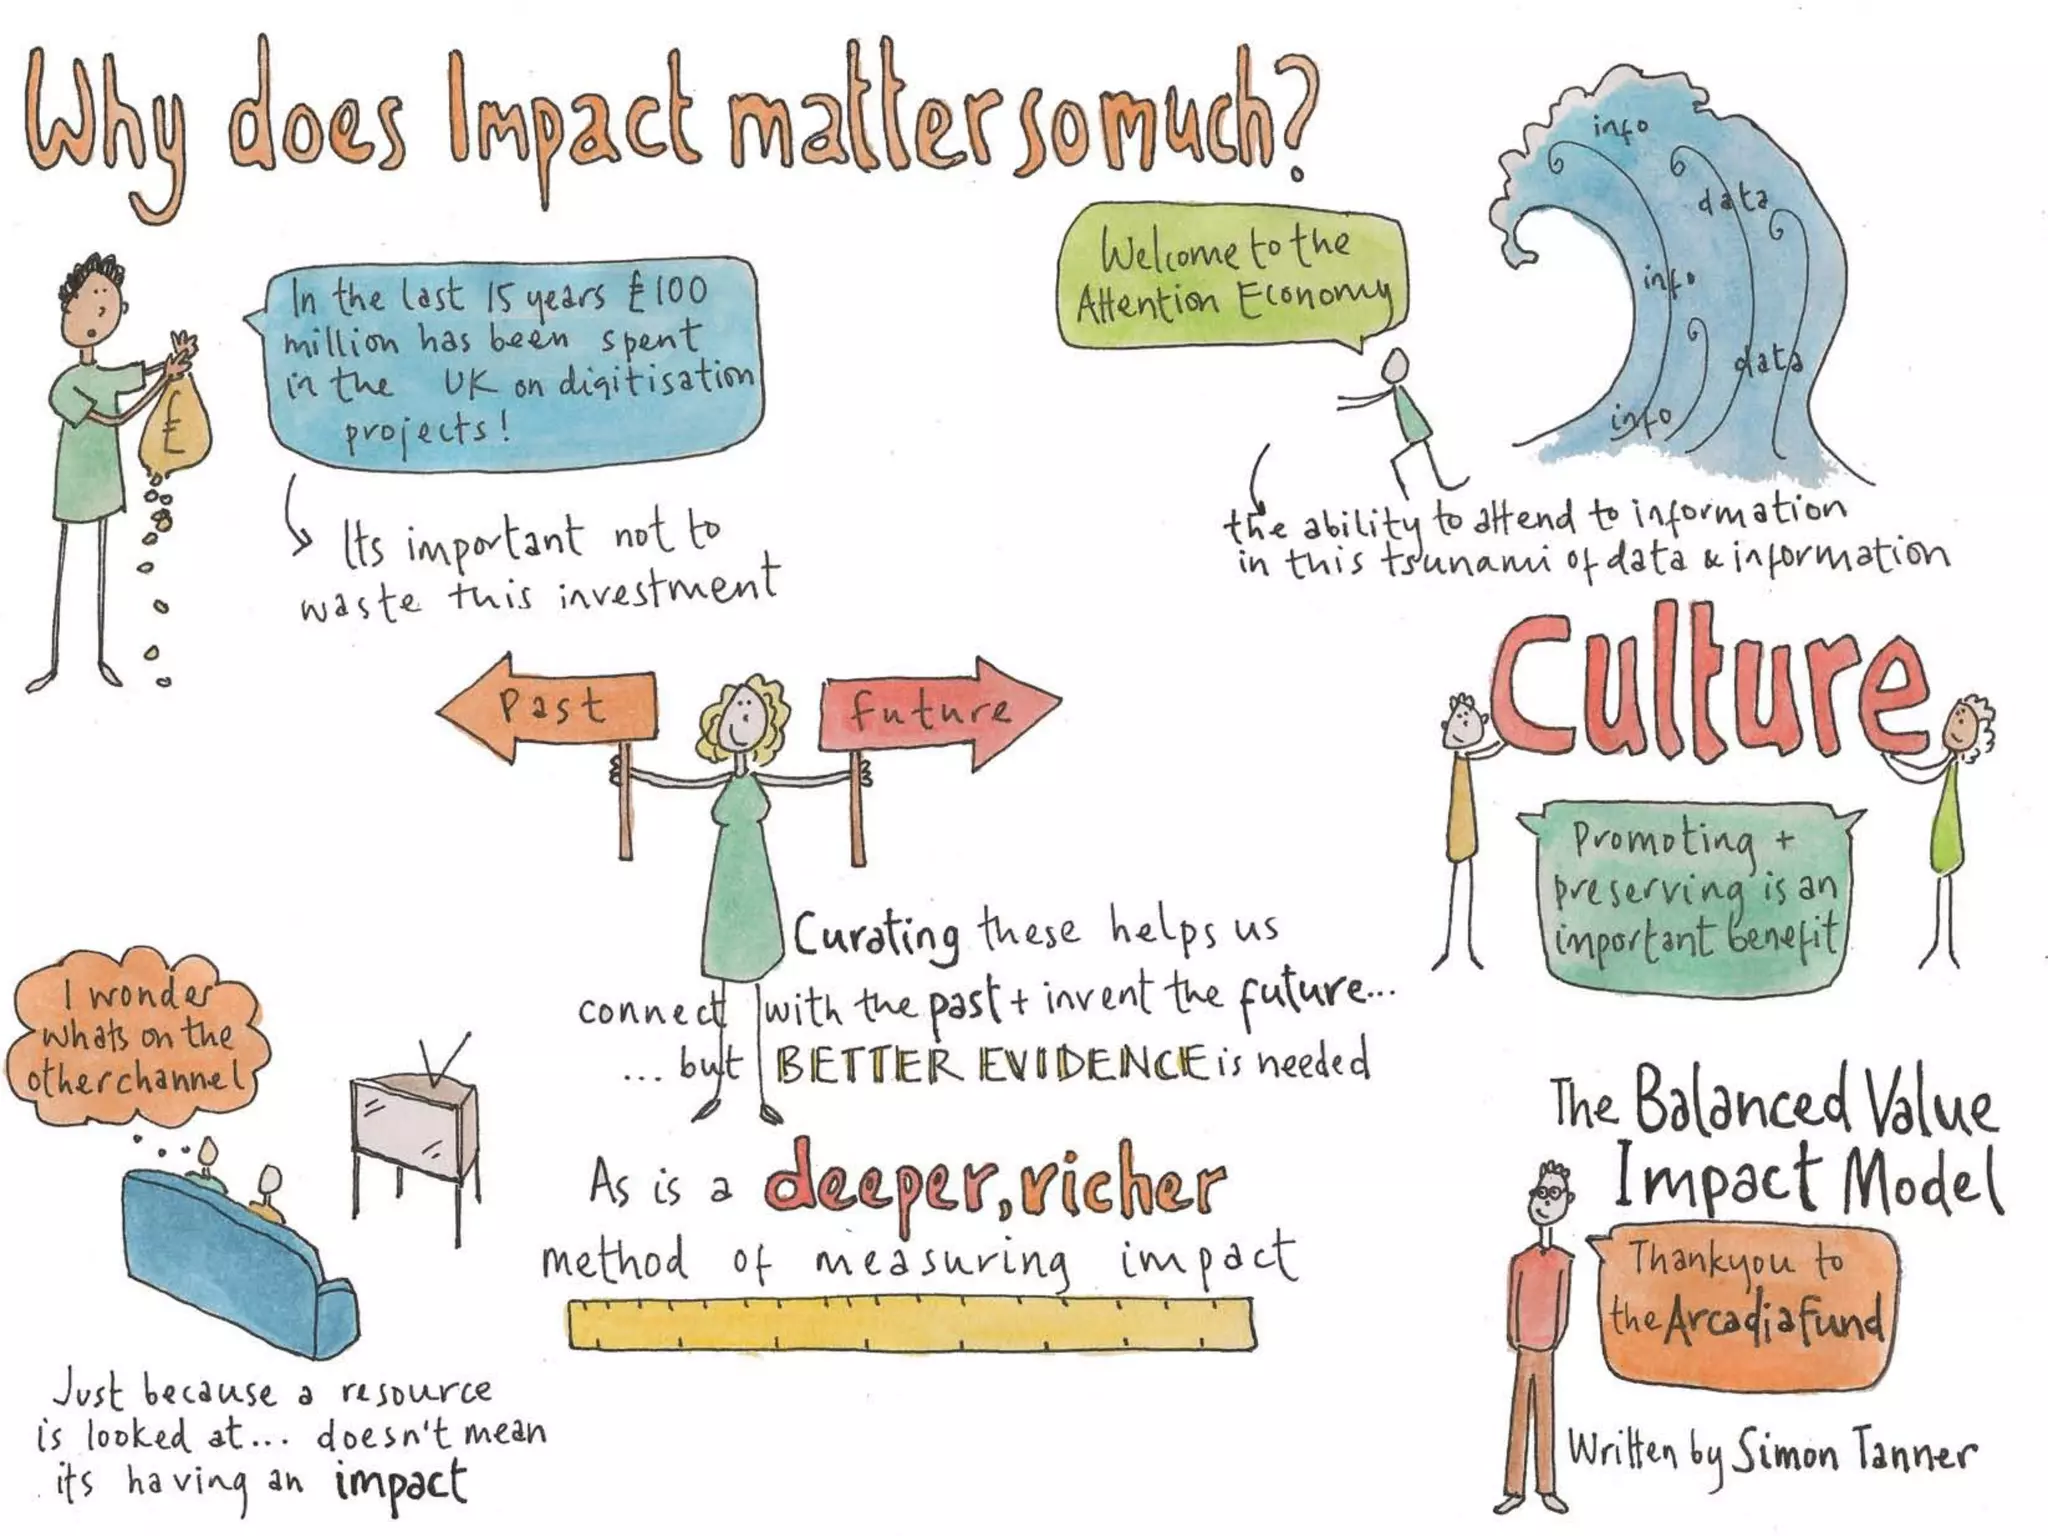 Why does Impact matter so much?
In the last 15 years £100
million has been spent
in the UK on digitisation
projects!
Its important not to
waste this investment
£
Welcome to the
Attention Economy
info
data
info
data
info
the ability to attend to information
in this tsunami of data & information
Past
Future
Curating these helps us
connect with the past + invent the future...
... but BETTER EVIDENCE is needed
Culture
Promoting +
preserving is an
important benefit
I wonder
whats on the
other channel
Just because a resource
is looked at... doesn't mean
its having an impact
As is a deeper, richer
method of measuring impact
The Balanced Value
Impact Model
Thankyou to
the Arcadia Fund
Written by Simon Tanner